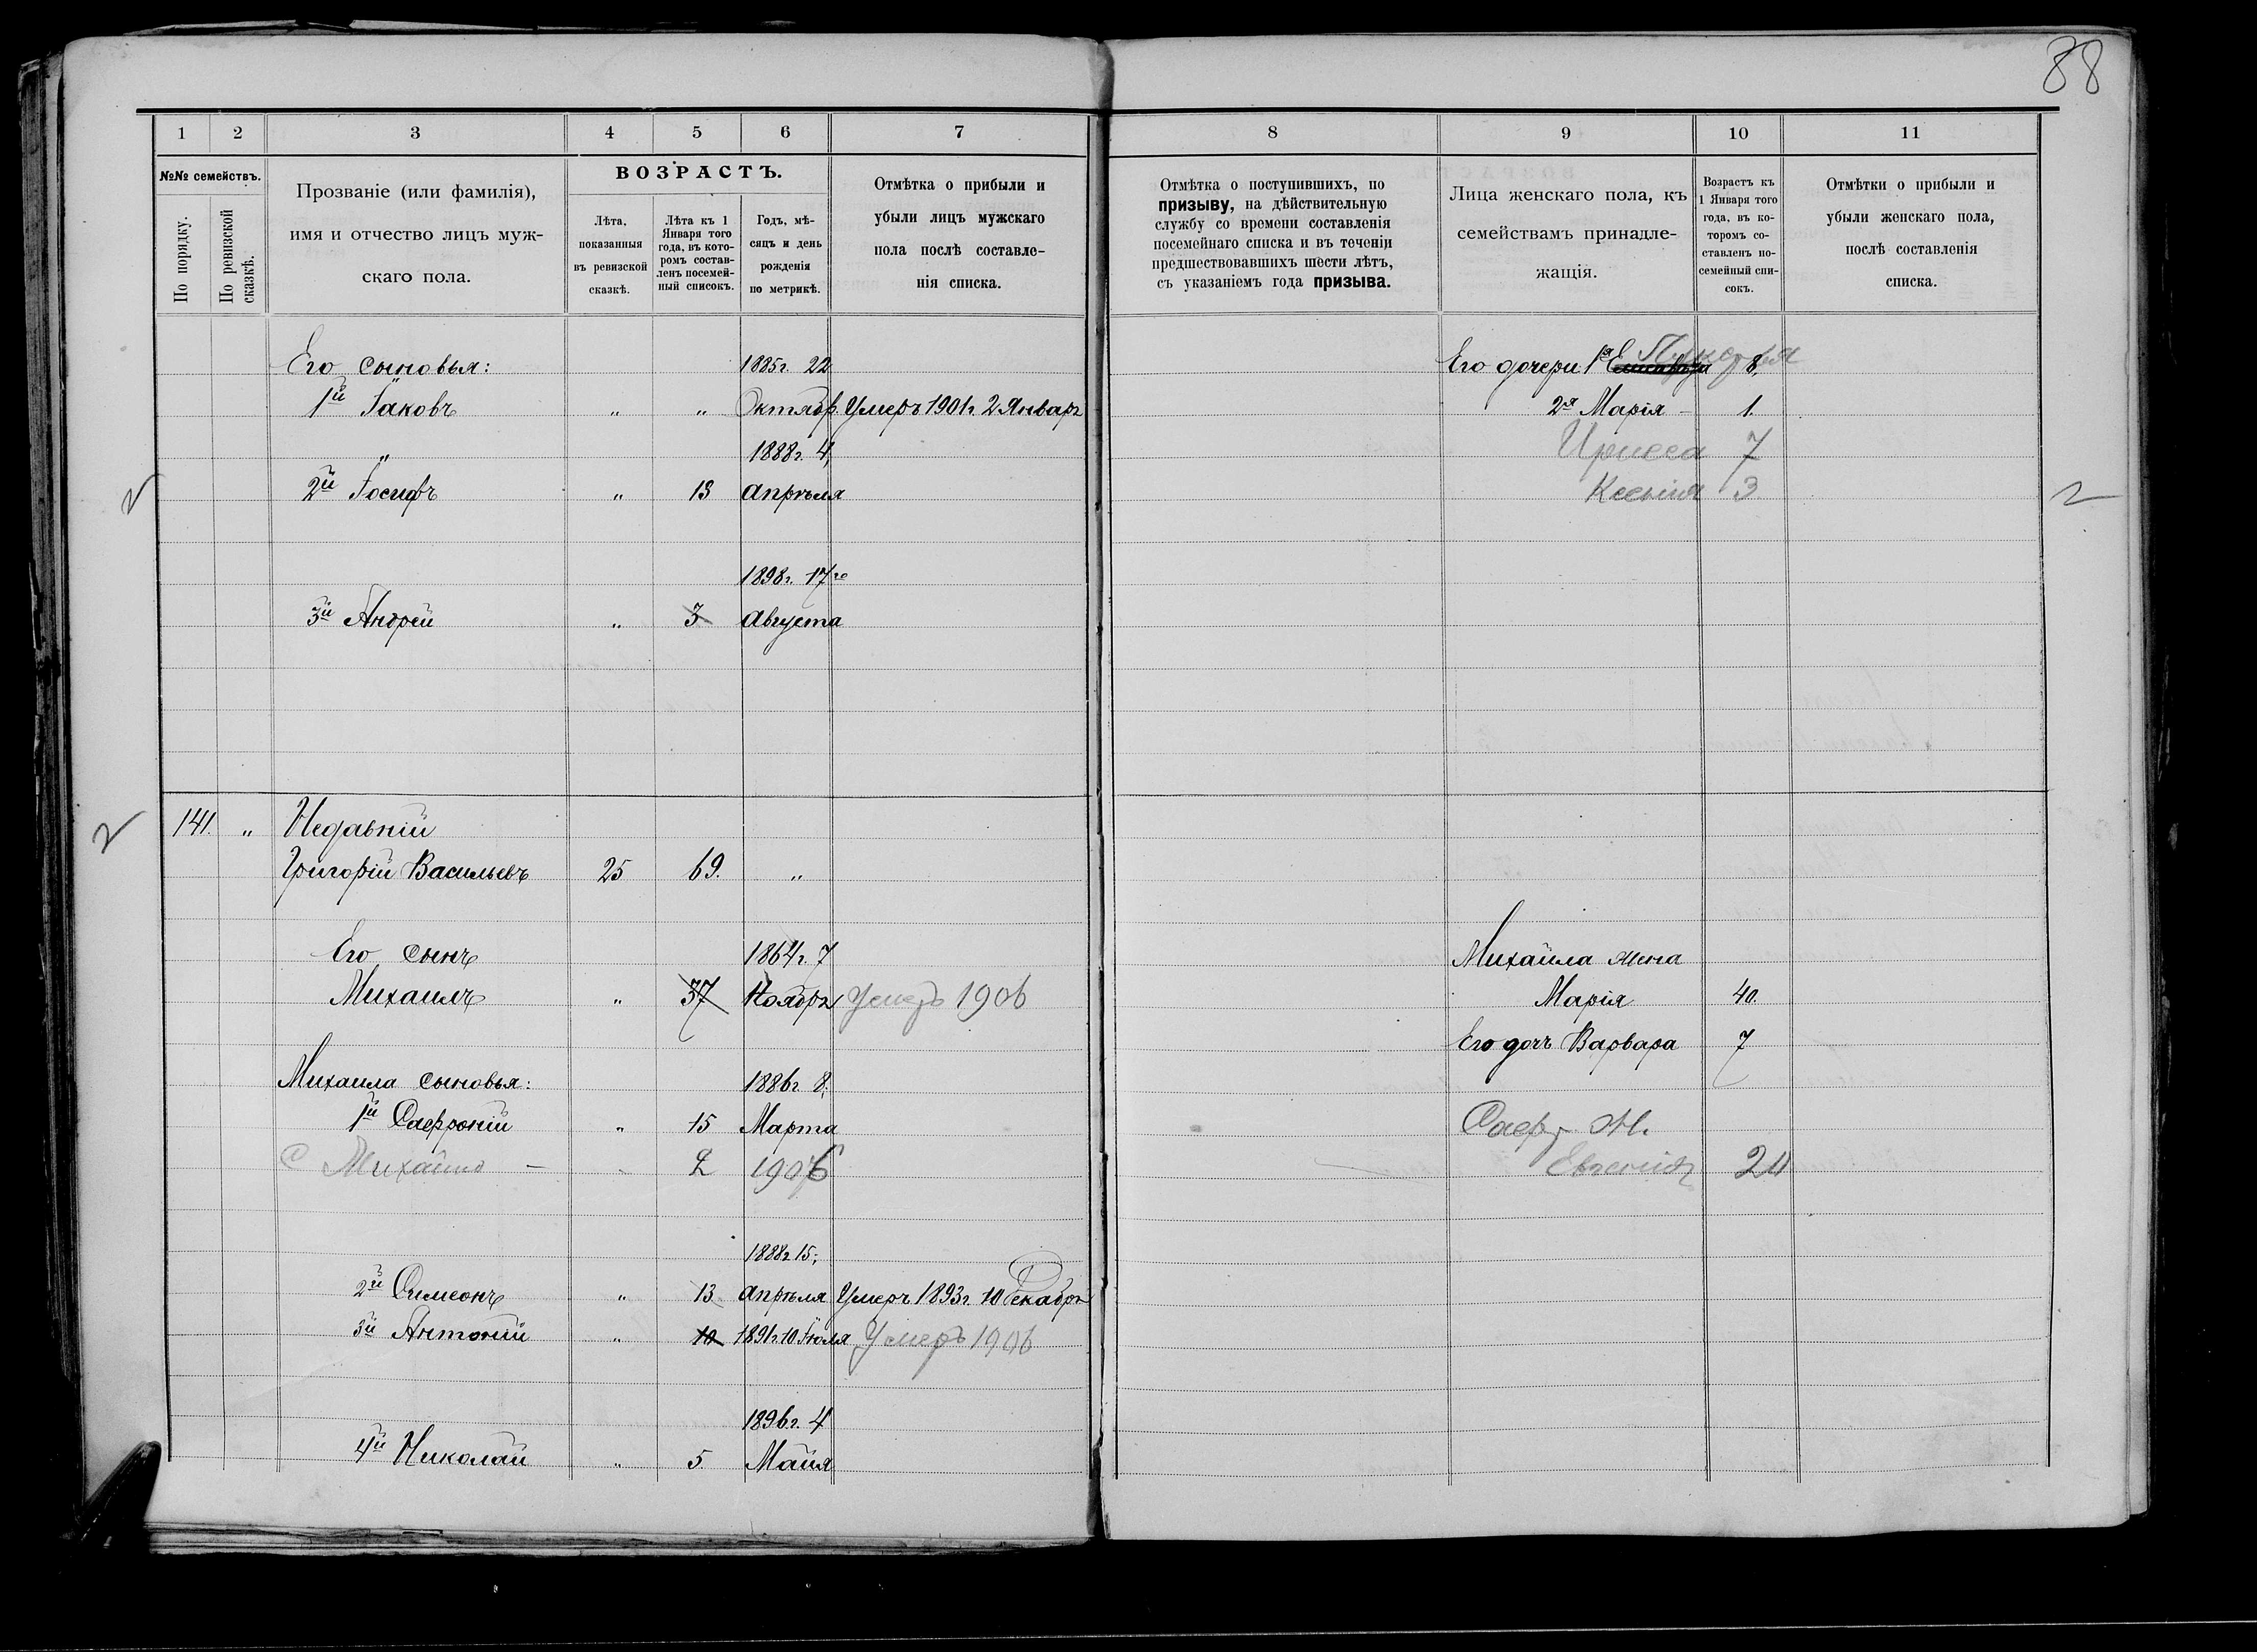 88
1 2 3 4 5 6 7
№№ семействъ.
По порядку.
По ревизской сказкѣ.
Прозваніе (или фамилія),
имя и отчество лицъ муж-
скаго пола.
ВОЗРАСТЪ.
Лѣта,
показанныя
въ ревизской
сказкѣ.
Лѣта къ 1
Января того
года, въ кото-
ромъ состав-
ленъ посемей-
ный списокъ.
Годъ, мѣ-
сяцъ и день
рожденія
по метрикѣ.
Отмѣтка о прибыли и
убыли лицъ мужскаго
пола послѣ составле-
нія списка.
Его сыновья: 1885г. 22
1й Іаковъ " " Октябр. Умеръ 1901г. 2 Январ
1888г. 4,
2й Іосифъ " 13 апрѣля
1898г. 17го
3й Андрей " 3 августа
141. " Недавній
Григорій Васильевъ 25 69. "
Его сынъ 1864г. 7
Михаилъ " 37 Ноября Умеръ 1906
Михаила сыновья: 1886г 8,
1й Сафроній " 15 Марта
С Михаило - 2 1906
1888г 15,
2й Симеонъ " 13 апрѣля Умеръ 1893г. 10 Декабря
3й Антоній " 10 1891г. 10 Іюля Умеръ 1906
1896г. 4
4й Николай " 5 Майя
8 9 10 11
Отмѣтка о поступившихъ, по
призыву, на дѣйствительную
службу со времени составленія
посемейнаго списка и въ теченіи
предшествовавшихъ шести лѣтъ,
съ указаніемъ года призыва.
Лица женскаго пола, къ
семействамъ принадле-
жащія.
Возрастъ къ
1 Января того
года, въ ко-
торомъ со-
ставленъ по-
семейный спи-
сокъ.
Отмѣтки о прибыли и
убыли женскаго пола,
послѣ составленія
списка.
Его дочери 1я 8.
2я Марія - 1.
7
Ксенія 3
2
Михаила жена
Марія 40.
Его дочь Варвара 7
Саф. Ж.
Евгенія 24